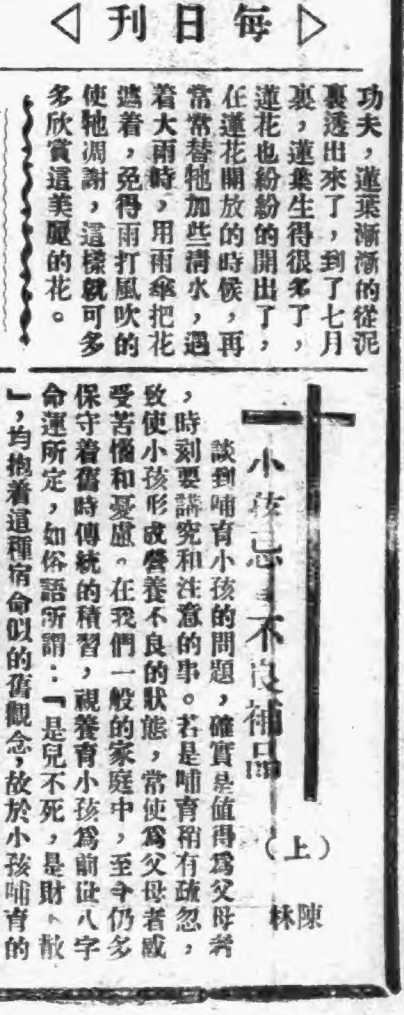 每日刊
功夫，蓮葉漸漸的從泥
裏透出來了，到了七月
裏，蓮葉生得很多了，
蓮花也紛紛的開出了，
在蓮花開放的時候，再
常常替牠加些清水，遇
着大雨時，用雨傘把花
遮着，免得雨打風吹的
使牠凋謝，這樣就可多
多欣賞這美麗的花。
小孩忌 不良補品
（上）
陳林
談到哺育小孩的問題，確實是值得爲父母者
，時刻要講究和注意的事。若是哺育稍有疏忽，
致使小孩形成營養不良的狀態，常使爲父母者感
受苦惱和憂慮。在我們一般的家庭中，至今仍多
保守着舊時傳統的積習，視養育小孩爲前世八字
命運所定，如俗語所謂：「是兒不死，是財不散
」，均抱着這種宿命似的舊觀念，故於小孩哺育的